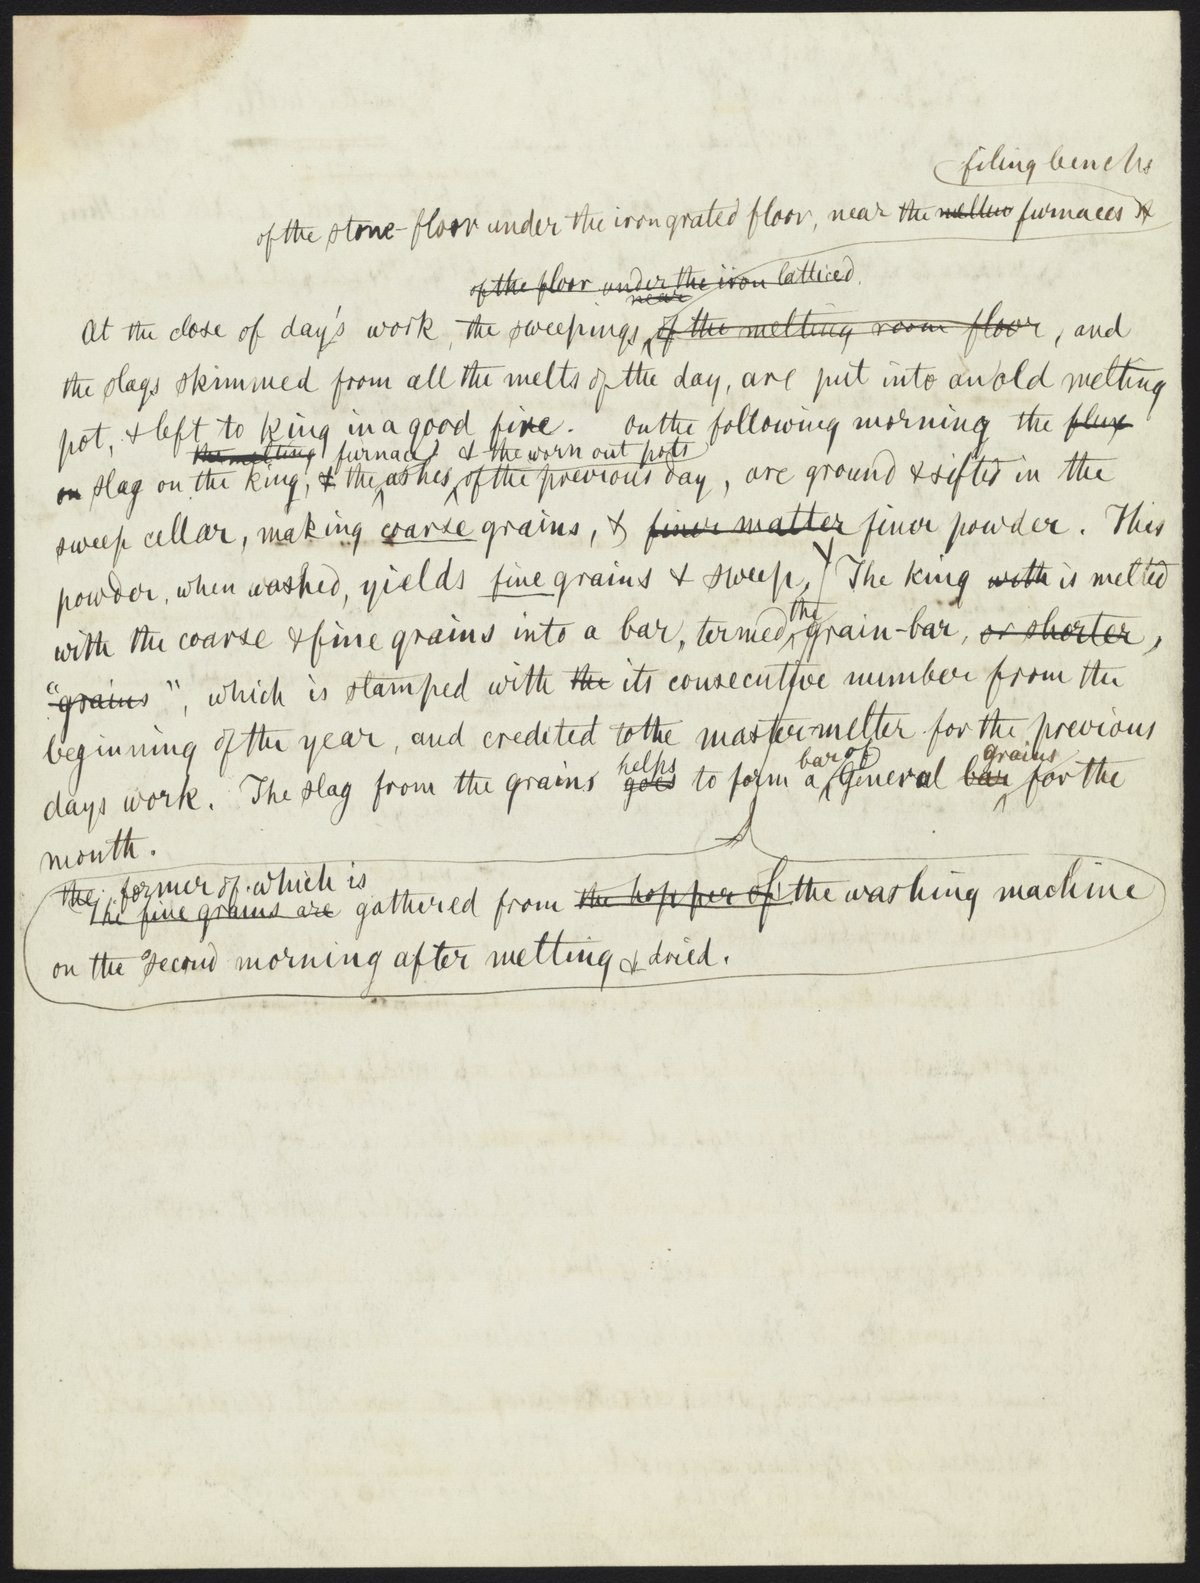 filing benchs
of the stone-floor under the iron grated floor, near the melter furnaces &
of the floor under the iron latticed
near
At the close of day's work, the sweepings of the melting room floor, and
the slags skimmed from all the melts of the day, are put into an old melting
pot, & left to king in a good fire. On the following morning the flux
the melting furnace & the worn out pots
on slag on the king, & the ashes of the previous day, are ground & sifted in the
sweep cellar, making coarse grains, & finer matter finer powder. This
powder, when washed, yields fine grains & sweep, The king with is melted
the
with the coarse & fine grains into a bar, termed grain-bar, or shorter,
"grains", which is stamped with the its consecutive number from the
beginning of the year, and credited to the master-melter for the previous
helps bar of grains
days work. The slag from the grains goes to form a General bar for the
month.
the former of which is
The fine grains are gathered from the hopper of the washing machine
on the second morning after melting & dried.